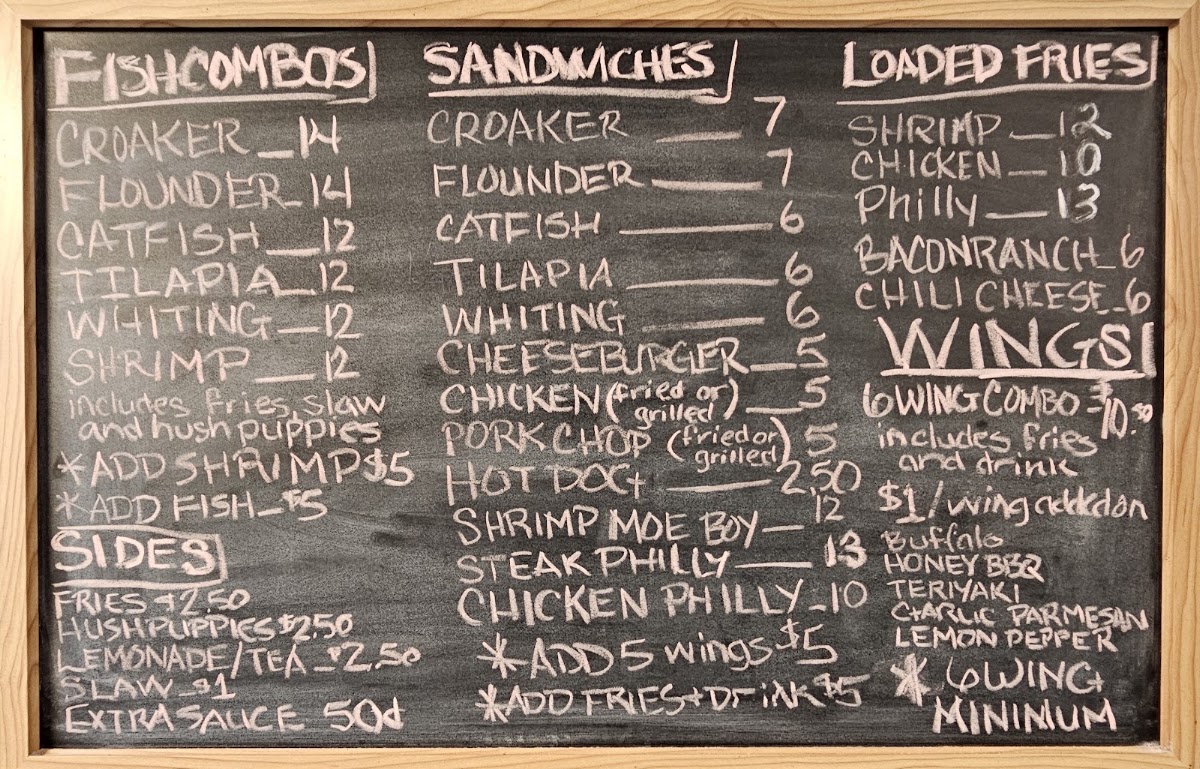 FISHCOMBOS
CROAKER _ 14
FLOUNDER _ 14
CATFISH _ 12
TILAPIA _ 12
WHITING _ 12
SHRIMP _ 12
includes fries, slaw
and hush puppies
*ADD SHRIMP $5
*ADD FISH _ $5
SIDES
FRIES $2.50
HUSHPUPPIES $2.50
LEMONADE/TEA _ $2.50
SLAW _ $1
EXTRA SAUCE 50¢
SANDWICHES
CROAKER ___ 7
FLOUNDER ___ 7
CATFISH ___ 6
TILAPIA ___ 6
WHITING ___ 6
CHEESEBURGER __ 5
CHICKEN (fried or
grilled) __ 5
PORK CHOP (fried or
grilled) 5
HOT DOG ___ 2.50
SHRIMP MOE BOY _ 12
STEAK PHILLY ___ 13
CHICKEN PHILLY _ 10
*ADD 5 wings $5
*ADD FRIES + DrinK $5
LOADED FRIES
SHRIMP _ 12
CHICKEN _ 10
Philly __ 13
BACONRANCH _ 6
CHILI CHEESE _ 6
WINGS
6 WING COMBO $10.50
includes fries
and drink
$1/wing added on
Buffalo
HONEY BBQ
TERIYAKI
GARLIC PARMESAN
LEMON PEPPER
* 6 WING
MINIMUM